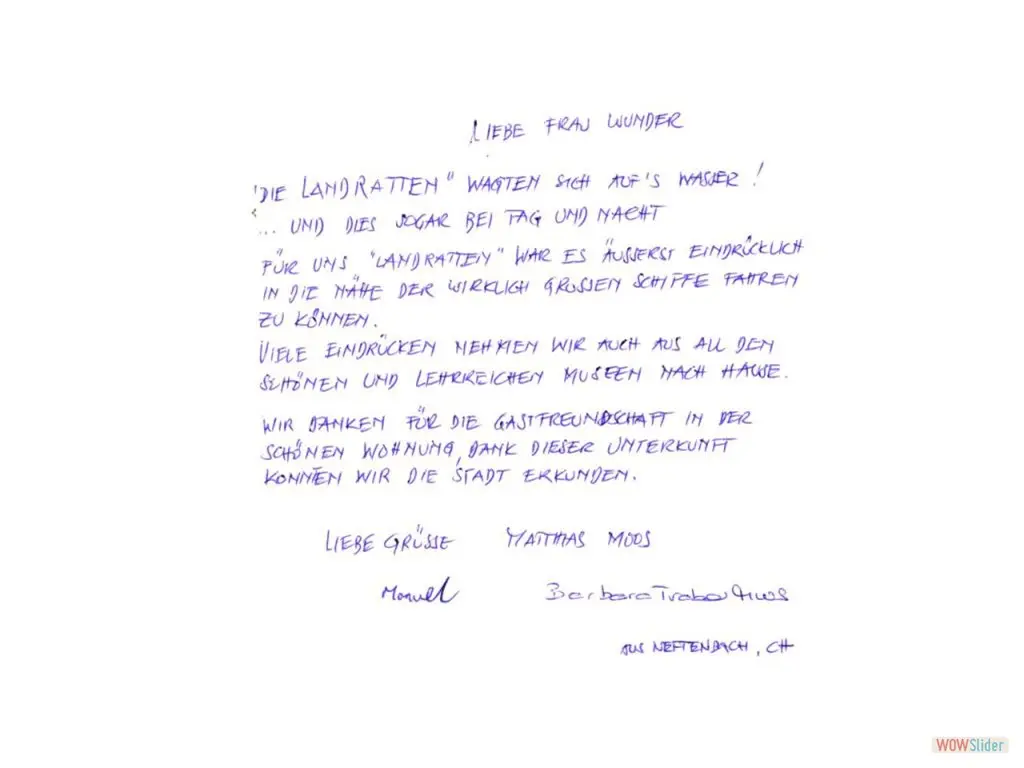 LIEBE FRAU WUNDER
"DIE LANDRATTEN" WAGTEN SICH AUF'S WASSER!
... UND DIES SOGAR BEI TAG UND NACHT
FÜR UNS "LANDRATTEN" WAR ES ÄUSSERST EINDRÜCKLICH
IN DIE NÄHE DER WIRKLICH GROSSEN SCHIFFE FAHREN
ZU KÖNNEN.
VIELE EINDRÜCKEN NEHMEN WIR AUCH AUS ALL DEN
SCHÖNEN UND LEHRREICHEN MUSEEN NACH HAUSE.
WIR DANKEN FÜR DIE GASTFREUNDSCHAFT IN DER
SCHÖNEN WOHNUNG, DANK DIESER UNTERKUNFT
KONNTEN WIR DIE STADT ERKUNDEN.
LIEBE GRÜSSE MATTHIAS MOOS
Manuel Barbara
AUS NEFTENBACH, CH
WOWSlider